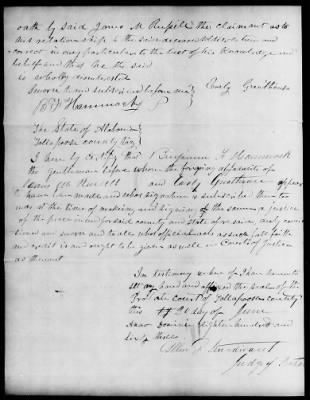 oath by said James M Russell the claimant as to
his relationship to the said deceased soldier being
correct in every particular to the best of his knowledge and
belief and that he the said
is wholly disinterested
Sworn to and subscribed before me
Early Grasthouse
B F Hammock J P
The State of Alabama
Tallapoosa county
I here by certify that Benjamin F Hammock
the gentleman before whom the foregoing affidavits of
James M Russell and Early appear
to have been made and whose signature is subscribed thereto
was at the time of making and signing of the same a justice
of the peace in and for said county and State of
and sworn and to all whose official acts as such full faith
and credit is and ought to be given as well in Courts of Justice
as thereout
In testimony where of I have hereunto
set my hand and affixed the seal of the
Probate court of Tallapoosa county
this day of June
Anno Domini Eighteen hundred and
sixty three
Allen D Sturdivant
Judge of Probate